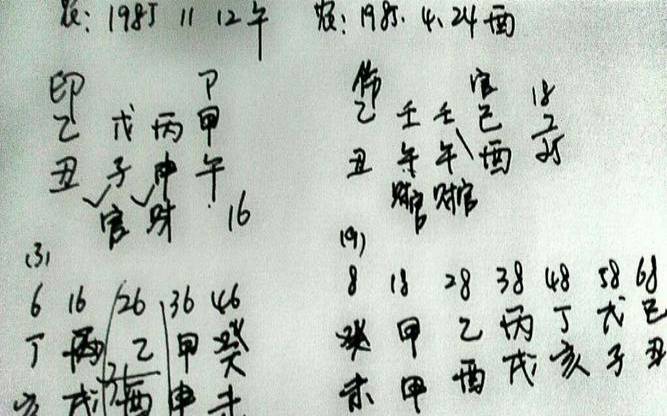 农: 1985 11 12午
农: 1985. 4. 24酉
印 卩
乙 戊 丙 甲
丑 子 申 午
官 财 16
伤 官
乙 壬 壬 己
丑 午 午 酉
财官 财官
18
7
25
(3)
6 16 26 36 46
丁 丙 乙 甲 癸
亥 戌 酉 申 未
(9)
8 18 28 38 48 58 68
癸 甲 乙 丙 丁 戊 己
未 甲 酉 戌 亥 子 丑